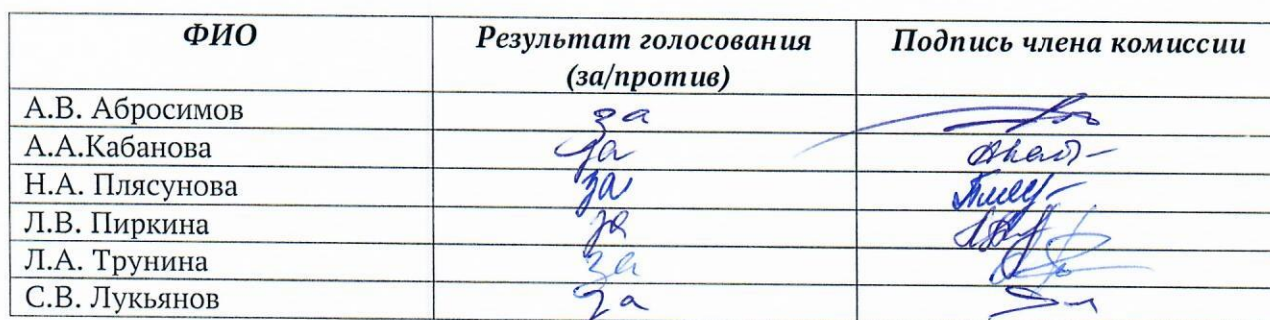 ФИО Результат голосования (за/против) Подпись члена комиссии
А.В. Абросимов за
А.А.Кабанова за
Н.А. Плясунова за
Л.В. Пиркина за
Л.А. Трунина за
С.В. Лукьянов за